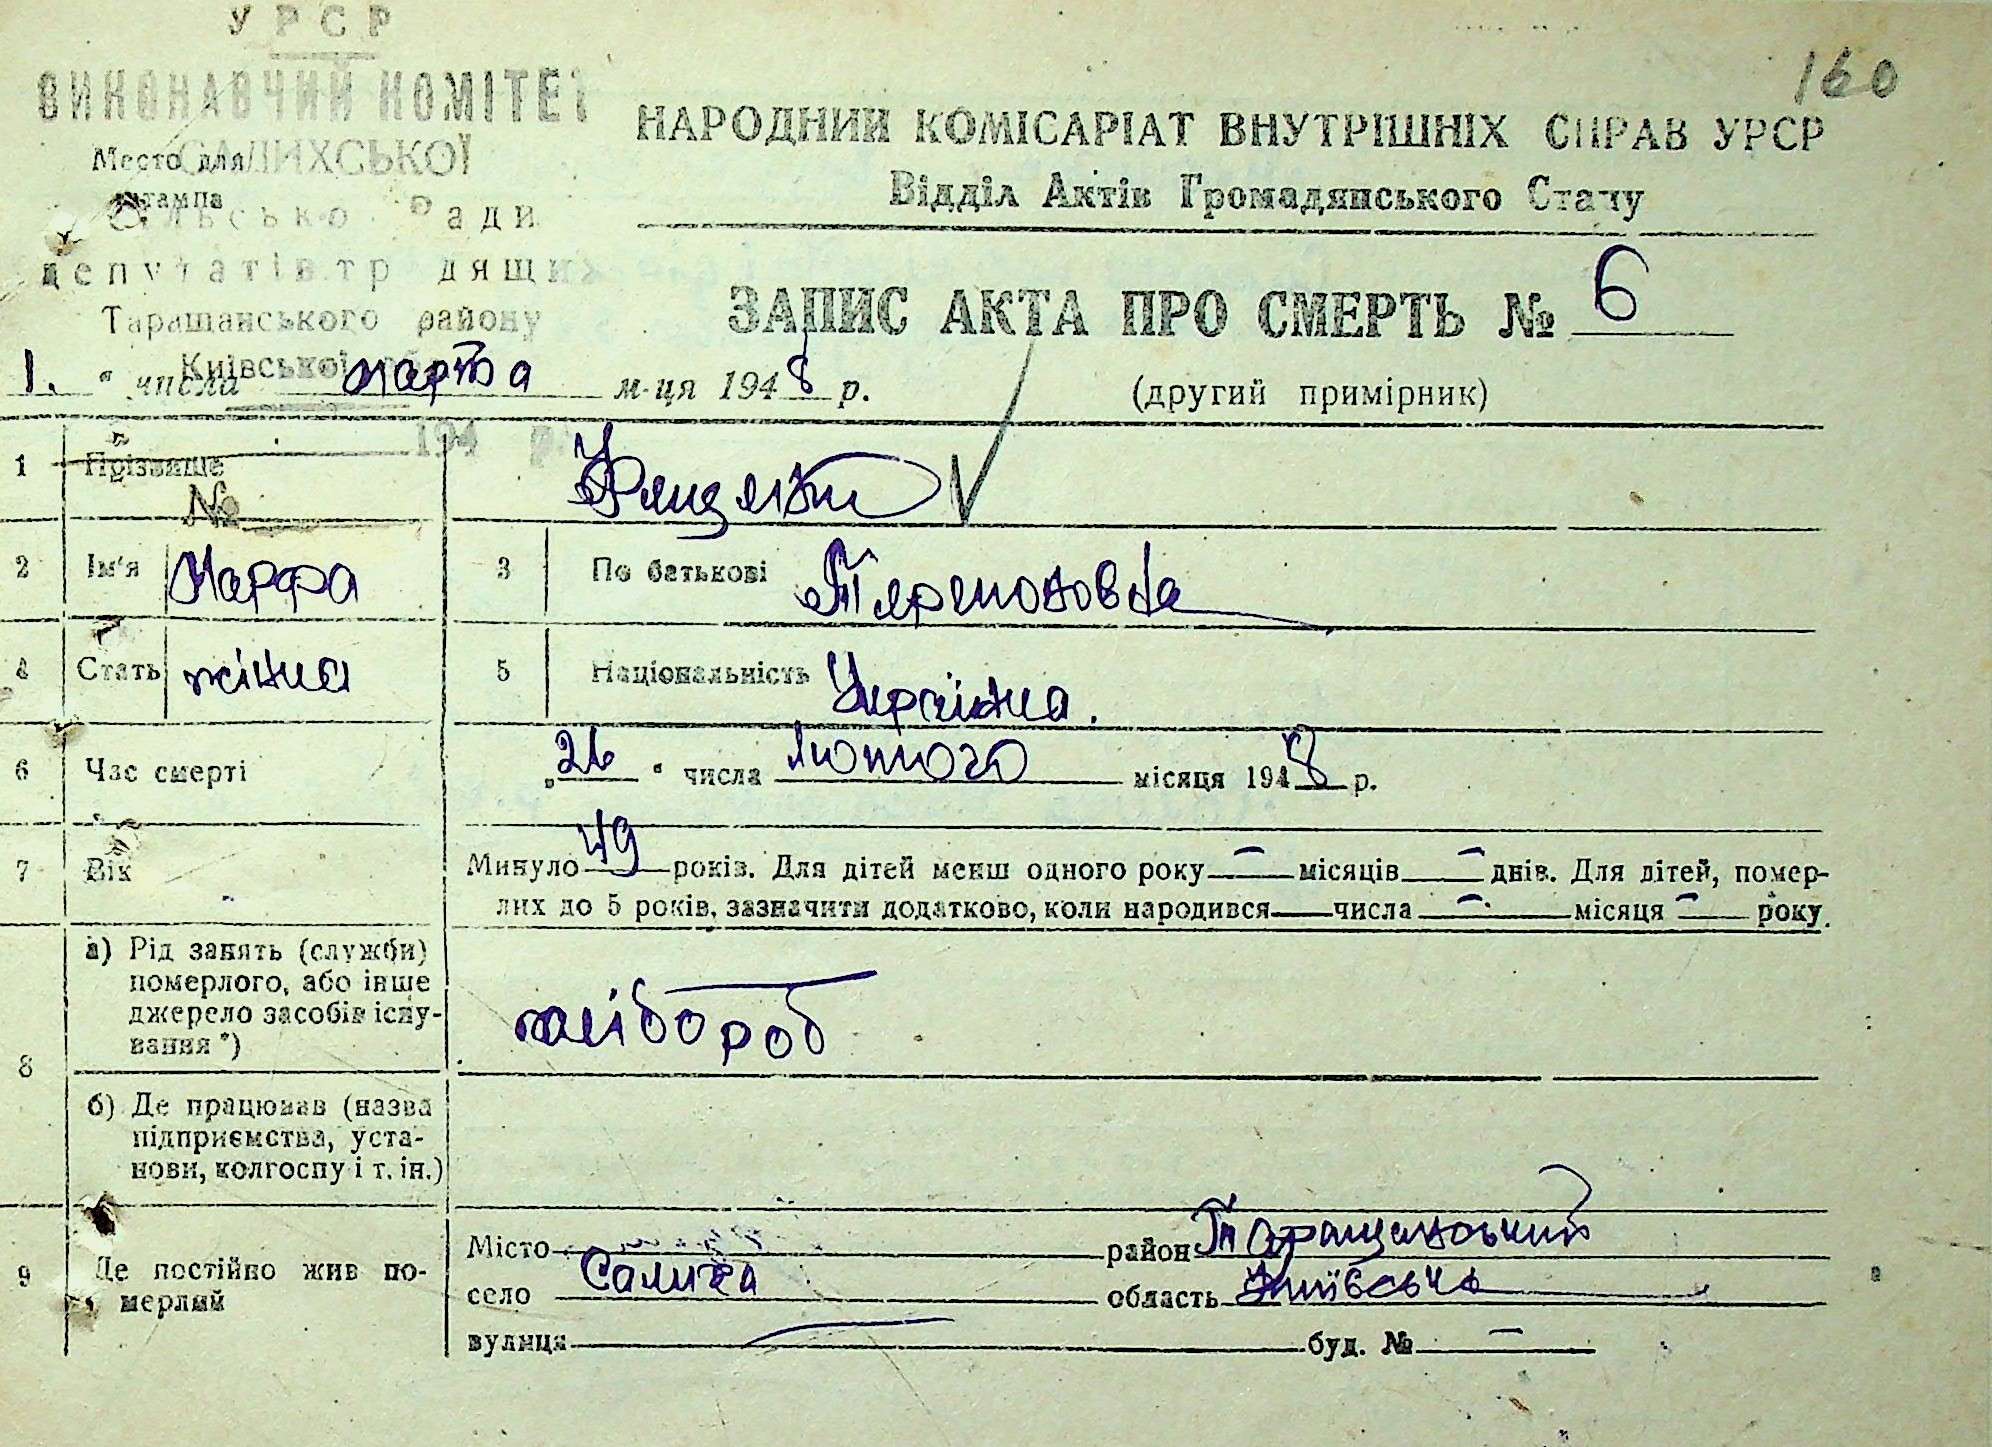 УРСР
160
ВИКОНАВЧИЙ КОМІТЕТ
САЛИХСЬКОЇ
Место для
штампа
Сільсько Ради
депутатів тр дящих
Таращанського району
Київської
194 р.
№
НАРОДНИЙ КОМІСАРІАТ ВНУТРІШНІХ СПРАВ УРСР
Відділ Актів Громадянського Стану
ЗАПИС АКТА ПРО СМЕРТЬ № 6
1. " числа марта м-ця 1948 р.
(другий примірник)
1 Прізвище
2 Ім'я Марфа 3 По батькові
4 Стать жінка 5 Національність Українка.
6 Час смерті „26 " числа лютого місяця 1948 р.
7 Вік Минуло 49 років. Для дітей менш одного року — місяців — днів. Для дітей, помер-
лих до 5 років, зазначити додатково, коли народився — числа — місяця — року.
8 а) Рід занять (служби)
померлого, або інше
джерело засобів існу-
вання *)
хлібороб
б) Де працював (назва
підприємства, уста-
нови, колгоспу і т. ін.)
9 Де постійно жив по-
мерлий
Місто район Таращанський
село Салиха область Київська
вулиця — буд. № —